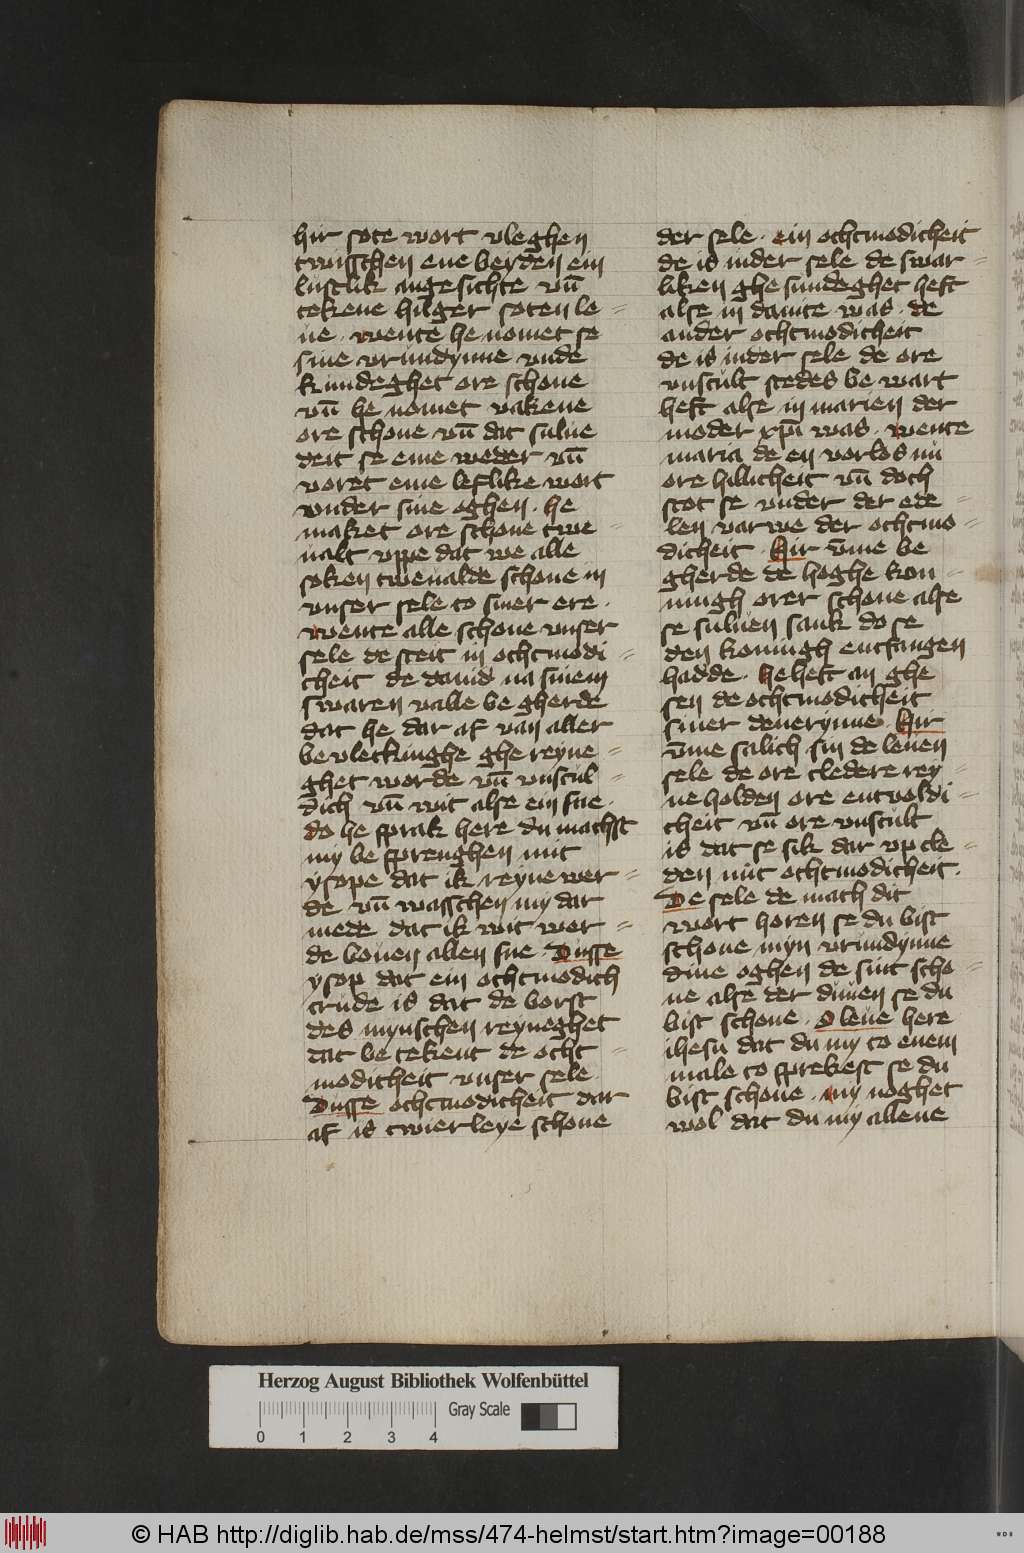 hir sote wort vleghen
twisschen ene beyden ein
lustlik angesichte vn̄
tekene hilger soten le =
ue · wente he nomet se
sine vrundynne vnde
kundeghet ore schone
vn̄ he nomet vakene
ore schone vn̄ dat sulue
deit se eme weder vn̄
voret eme leflike wort
vnder sine oghen · he
maket ore schone twe =
ualt vppe dat we alle
soken tweualde schone in
vnser sele to siner ere ·
wente alle schone vnser
sele de steit in othmodi =
cheit de dauid na sinem
swaren valle be gherde
dat he dar af van aller
bevleckinghe ghe reyne =
ghet worde vn̄ vnscul =
dich vn̄ wit alse ein sne ·
do he sprak here du machst
my be sprenghen mit
ysope dat ik reyne wer =
de vn̄ wasschen my dar
mede dat ik wit wor =
de bouen allen sne · Dusse
ysop dat ein othmodich
crude is dat de borst
des mynschen reyneghet
dat be tekent de oth =
modicheit vnser sele ·
Dusse othmodicheit dar
af is twierleye schone
der sele · ein othmodicheit
de is in der sele de swar =
liken ghe sundeghet heft
alse in dauite was · de
ander othmodicheit
de is in der sele de ore
vnscult stedes be wart
heft alse in marien der
moder xp̄i was · wente
maria de en vorlos nu
ore hillicheit vn̄ doch
stot se vnder der ede =
len varwe der othmo =
dicheit · Hir v̄me be
gherde de hoghe kon =
ningh orer schone alse
se suluen sank do se
den konnigh entfangen
hadde · he heft an ghe
sen de othmodicheit
siner denerynne · Hir
v̄me salich sin de leuen
sele de ore cledere rey =
ne holden ore entvoldi =
cheit vn̄ ore vnscult
is dat se sik dar vp cle =
den mit othmodicheit ·
De sele de mach dit
wort horen se du bist
schone myn vrundynne
dine oghen de sint scho =
ne alse der duuen se du
bist schone · O leue here
ihesu dat du my to enem
male to sprekest se du
bist schone · my noghet
wol dat du my allene
Herzog August Bibliothek Wolfenbüttel
Gray Scale
0 1 2 3 4
© HAB http://diglib.hab.de/mss/474-helmst/start.htm?image=00188
WDB